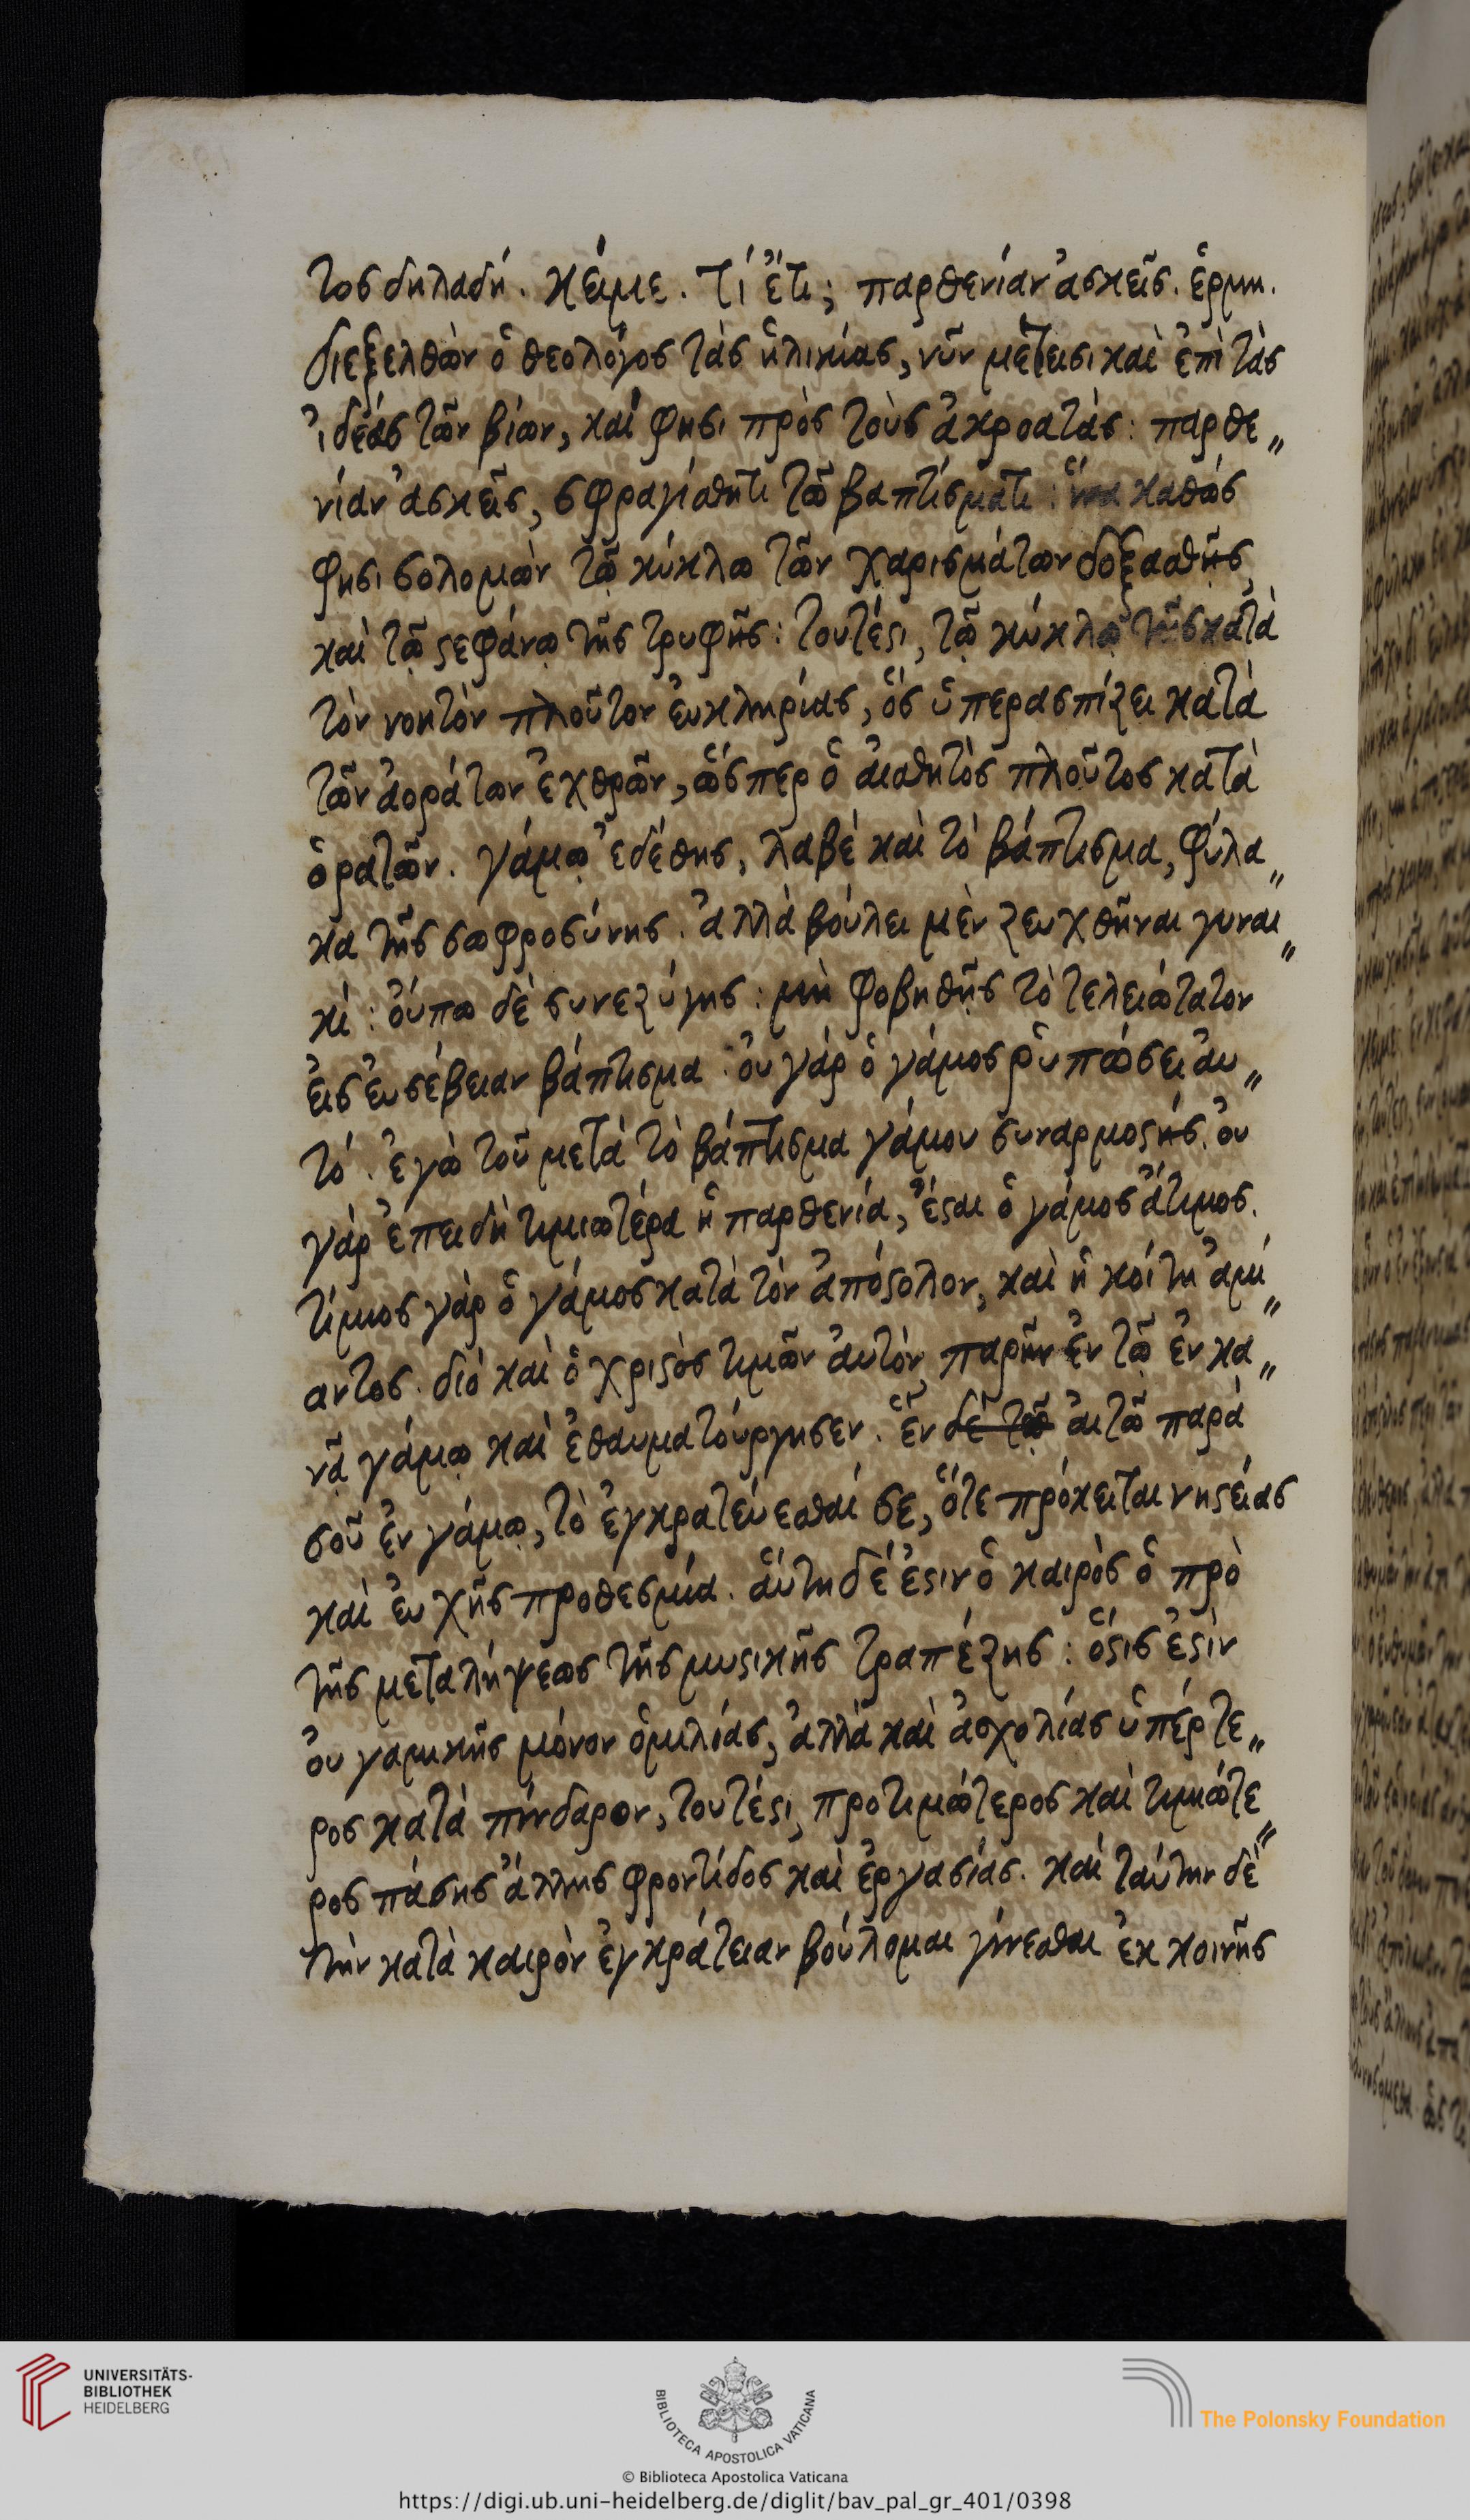 τος δηλαδή. κείμε. τί ἔτι; παρθενίαν ἀσκεῖς. ἑρμη.
διεξελθὼν ὁ θεολόγος τὰς ἡλικίας, νῦν μέτεισι καὶ ἐπὶ τὰς
ἰδέας τῶν βίων, καί φησι πρὸς τοὺς ἀκροατάς: παρθε〃
νίαν ἀσκεῖς, σφραγίσθητι τῶ βαπτίσματι: ἵνα καθώς
φησι σολομὼν τῷ κύκλω τῶν χαρισμάτων δοξασθῇς,
καὶ τῷ στεφάνῳ τῆς τρυφῆς: τουτέστι, τῷ κύκλῳ τῆς κατὰ
τὸν νοητὸν πλοῦτον εὐκληρίας, ὃς ὑπερασπίζει κατὰ
τῶν ἀοράτων ἐχθρῶν, ὥσπερ ὁ αἰσθητὸς πλοῦτος κατὰ
ὁρατῶν. γάμῳ ἐδέθης, λαβὲ καὶ τὸ βάπτισμα, φύλα〃
κα τῆς σωφροσύνης. ἀλλὰ βούλει μὲν ζευχθῆναι γυναι〃
κί: οὔπω δὲ συνεζύγης: μὴ φοβηθῇς τὸ τελειώτατον
εἰς εὐσέβειαν βάπτισμα: οὐ γὰρ ὁ γάμος ῥυπώσει αὐ〃
τό. ἐγὼ τοῦ μετὰ τὸ βάπτισμα γάμου συναρμοστής. οὐ
γὰρ ἐπειδὴ τιμιωτέρα ἡ παρθενία, ἔσται ὁ γάμος ἄτιμος.
τίμιος γὰρ ὁ γάμος κατὰ τὸν ἀπόστολον, καὶ ἡ κοίτη ἀμί〃
αντος. διὸ καὶ ὁ χριστὸς τιμῶν αὐτὸν, παρῆν ἐν τῷ ἐν κα〃
νᾷ γάμῳ καὶ ἐθαυματούργησεν. ἓν δὲ τῶ αἰτῶ παρὰ
σοῦ ἐν γάμῳ, τὸ ἐγκρατεύεσθαί σε, ὅτε πρόκειται νηστείας
καὶ εὐχῆς προθεσμία. αὕτη δέ ἐστιν ὁ καιρὸς ὁ πρὸ
τῆς μεταλήψεως τῆς μυστικῆς τραπέζης: ὅστις ἐστὶν
οὐ γαμικῆς μόνον ὁμιλίας, ἀλλὰ καὶ ἀσχολίας ὑπέρτε〃
ρος κατὰ πίνδαρον, τουτέστι, προτιμώτερος καὶ τιμιώτε〃
ρος πάσης ἄλλης φροντίδος καὶ ἐργασίας. καὶ ταύτην δὲ
τὴν κατὰ καιρὸν ἐγκράτειαν βούλομαι γίνεσθαι ἐκ κοινῆς
UNIVERSITÄTS-
BIBLIOTHEK
HEIDELBERG
BIBLIOTECA APOSTOLICA VATICANA
The Polonsky Foundation
© Biblioteca Apostolica Vaticana
https://digi.ub.uni-heidelberg.de/diglit/bav_pal_gr_401/0398